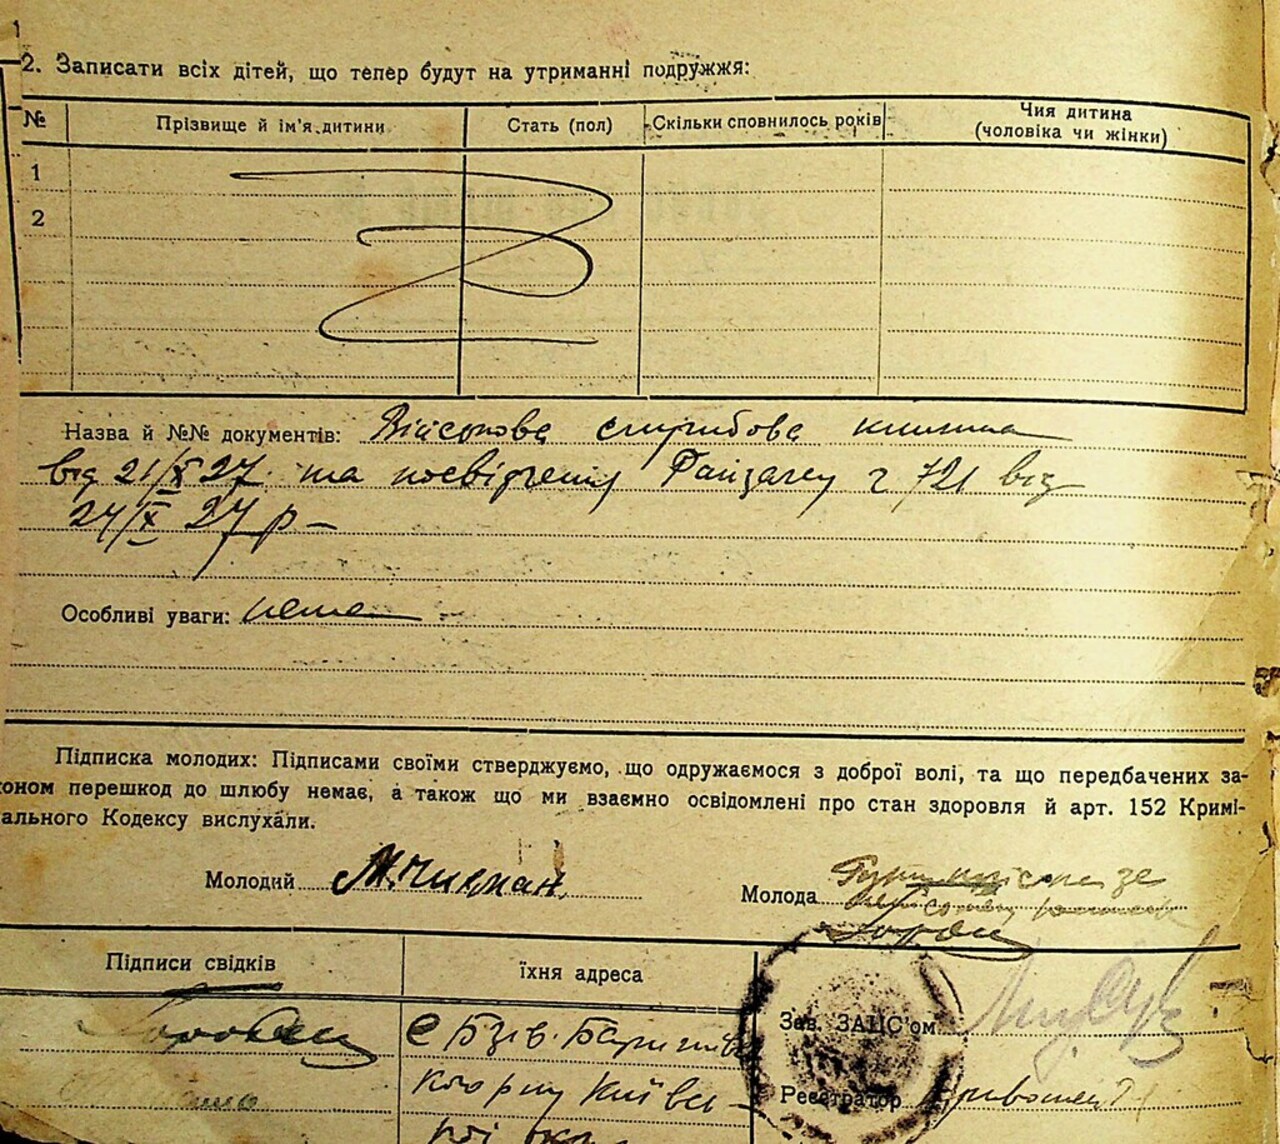 2. Записати всіх дітей, що тепер будут на утриманні подружжя:
№ Прізвище й ім'я дитини Стать (пол) Скільки сповнилось років Чия дитина
(чоловіка чи жінки)
1
2
Назва й №№ документів: Військова службова книжка
від 21/X 27 та посвідчення Райзагсу 721 від
24/X 27 р
Особливі уваги: нема
Підписка молодих: Підписами своїми стверджуємо, що одружаємося з доброї волі, та що передбачених за-
коном перешкод до шлюбу немає, а також що ми взаємно освідомлені про стан здоровля й арт. 152 Кримі-
ального Кодексу вислухали.
Молодий М. Чикман
Молода
Підписи свідків їхня адреса
с Бзів Баришів
Зав. ЗАЦС'ом
Київсь
Реєстратор